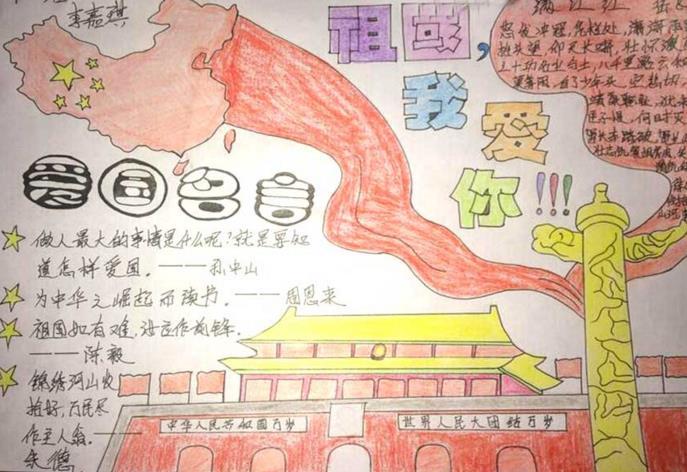 李嘉琪
祖国,
我
爱
你!!!
满江红
怒发冲冠,凭栏处,潇潇雨
抬头望,仰天长啸,壮怀激
三十功名尘土,八千里路云和
白了少年头,空悲切
靖康耻,犹未
臣子恨,何时灭
爱国名言
做人最大的事情是什么呢?就是要知
道怎样爱国。——孙中山
为中华之崛起而读书。——周恩来
祖国如有难,汝应作前锋。
——陈毅
锦绣河山收
拾好,万民尽
作主人翁。
朱德
中华人民共和国万岁
世界人民大团结万岁